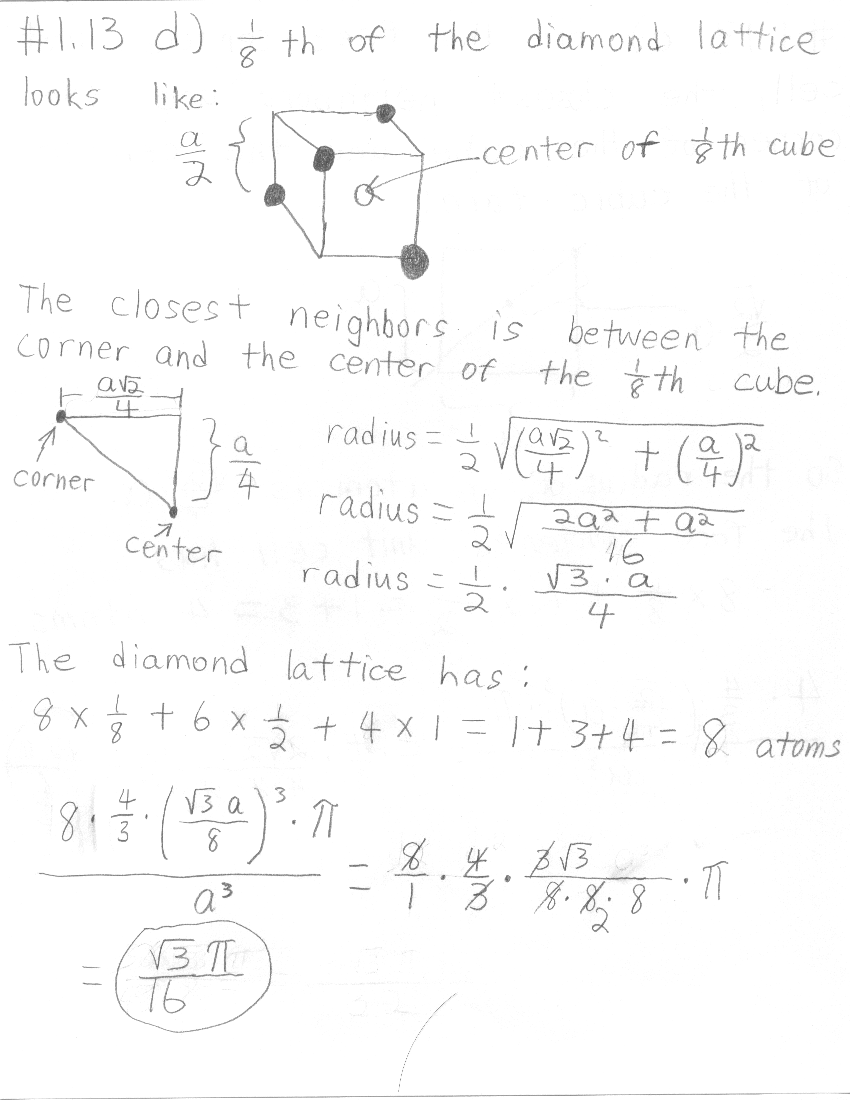 #1.13 d) 1/8 th of the diamond lattice
looks like:
a/2 {
center of 1/8th cube
The closest neighbors is between the
corner and the center of the 1/8th cube.
a√2/4
} a/4
corner
center
radius = 1/2 √((a√2/4)² + (a/4)²)
radius = 1/2 √((2a² + a²)/16)
radius = 1/2 · (√3 · a)/4
The diamond lattice has:
8 × 1/8 + 6 × 1/2 + 4 × 1 = 1 + 3 + 4 = 8 atoms
(8 · 4/3 · (√3 a/8)³ · π)/a³ = 8/1 · 4/3 · (3√3)/(8 · 8 · 8) · π
2
= (√3 π)/16